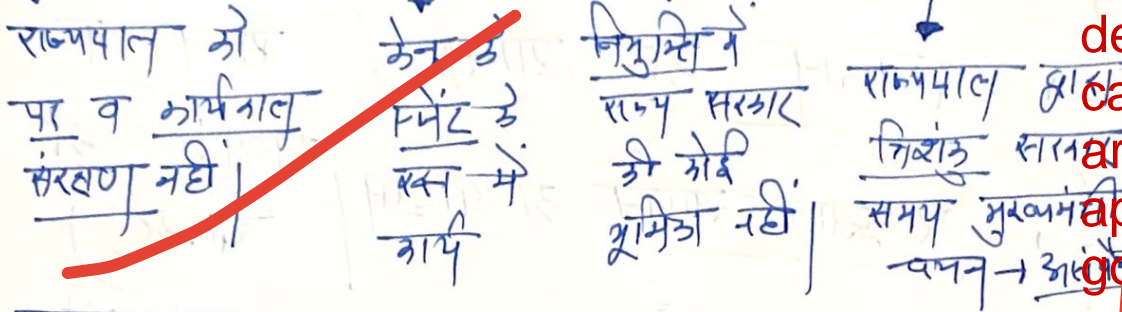 राज्यपाल को
पद व कार्यकाल
संरक्षण नहीं।
केन्द्र के
एजेंट के
रूप में
कार्य
नियुक्ति में
राज्य सरकार
की कोई
भूमिका नहीं।
राज्यपाल द्वारा
त्रिशंकु
समय मुख्यमंत्री
चयन →
de
ca
ar
ap
go